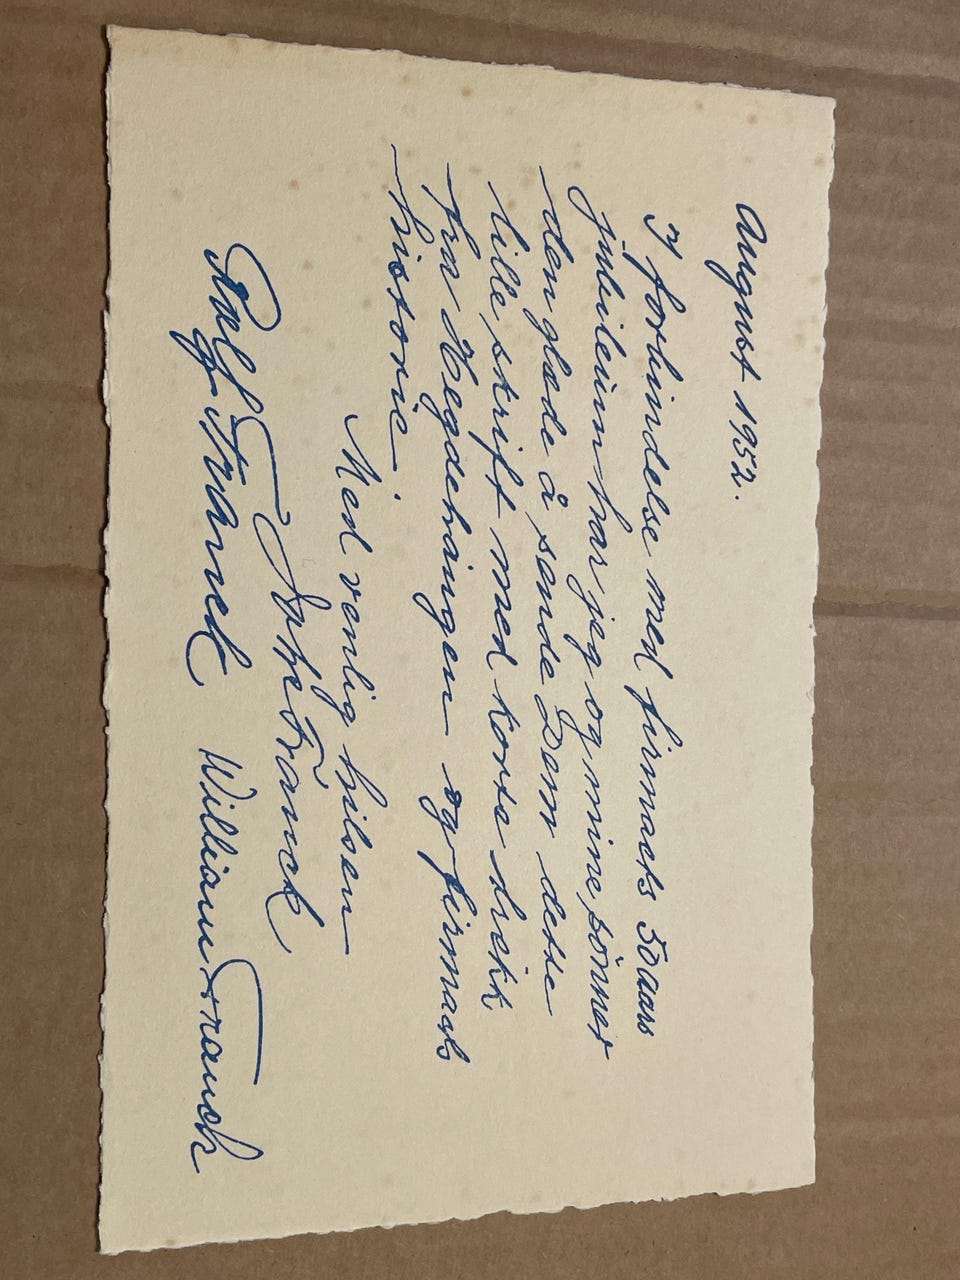 August 1952.
I forbindelse med firmaets 50 aars
jubileum har jeg og mine sönner
den glæde å sende Dem dette
lille skrift med korte drekk
fra Hegdehaugen og firmaets
historie
Med venlig hilsen
Franck
Rolf Franck William Franck